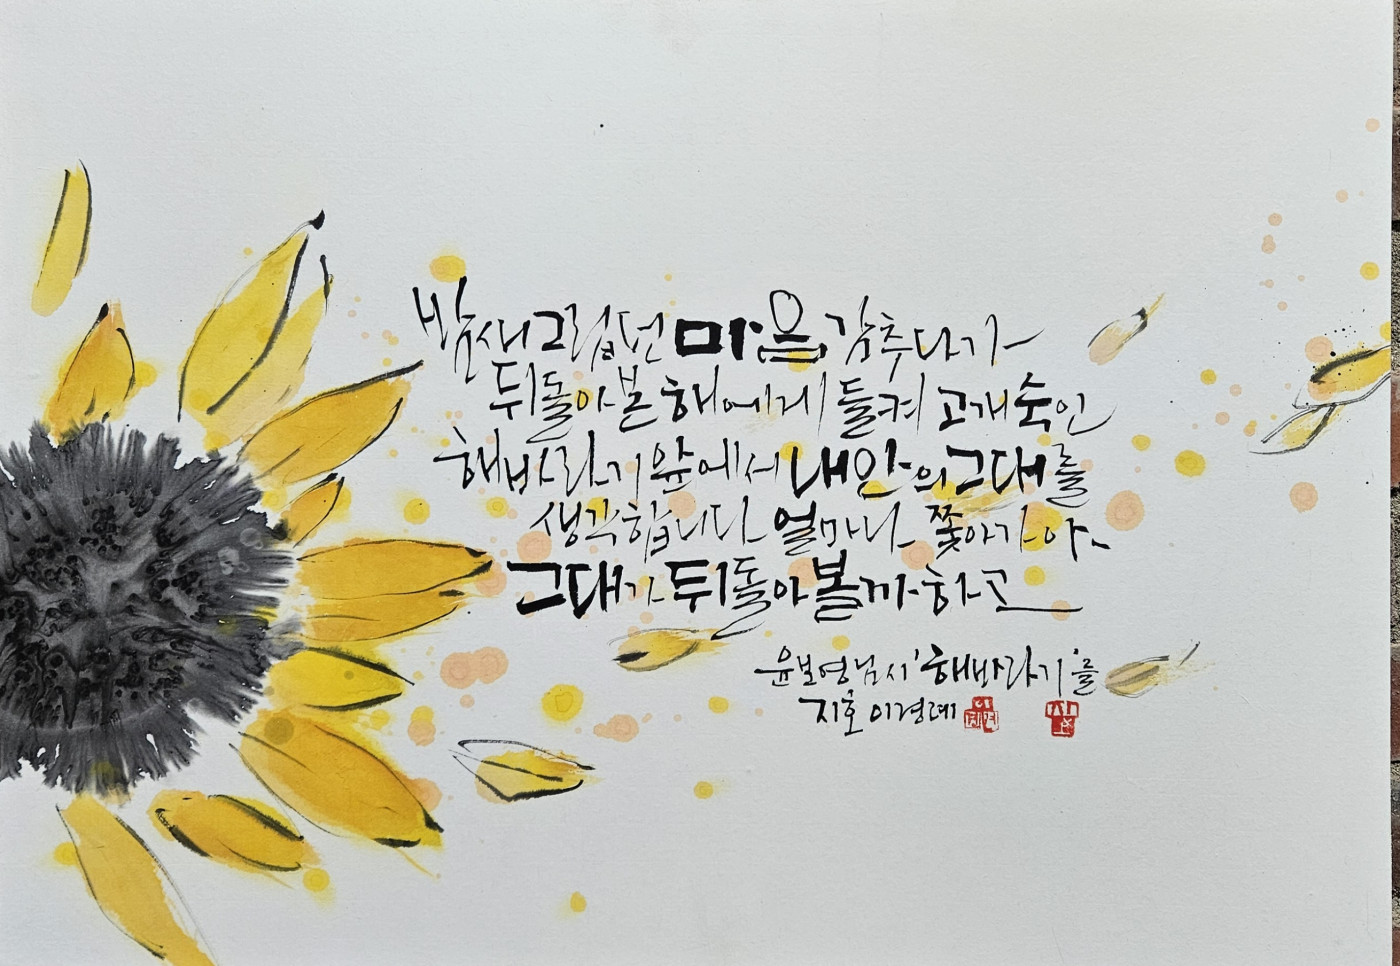 밤새 그립던 마음 감추다가
뒤돌아본 해에게 들켜 고개 숙인
해바라기 앞에서 내 안의 그대를
생각합니다 얼마나 쫓아가야
그대가 뒤돌아볼까 하고
윤보영님 시 '해바라기'를
지호 이경례